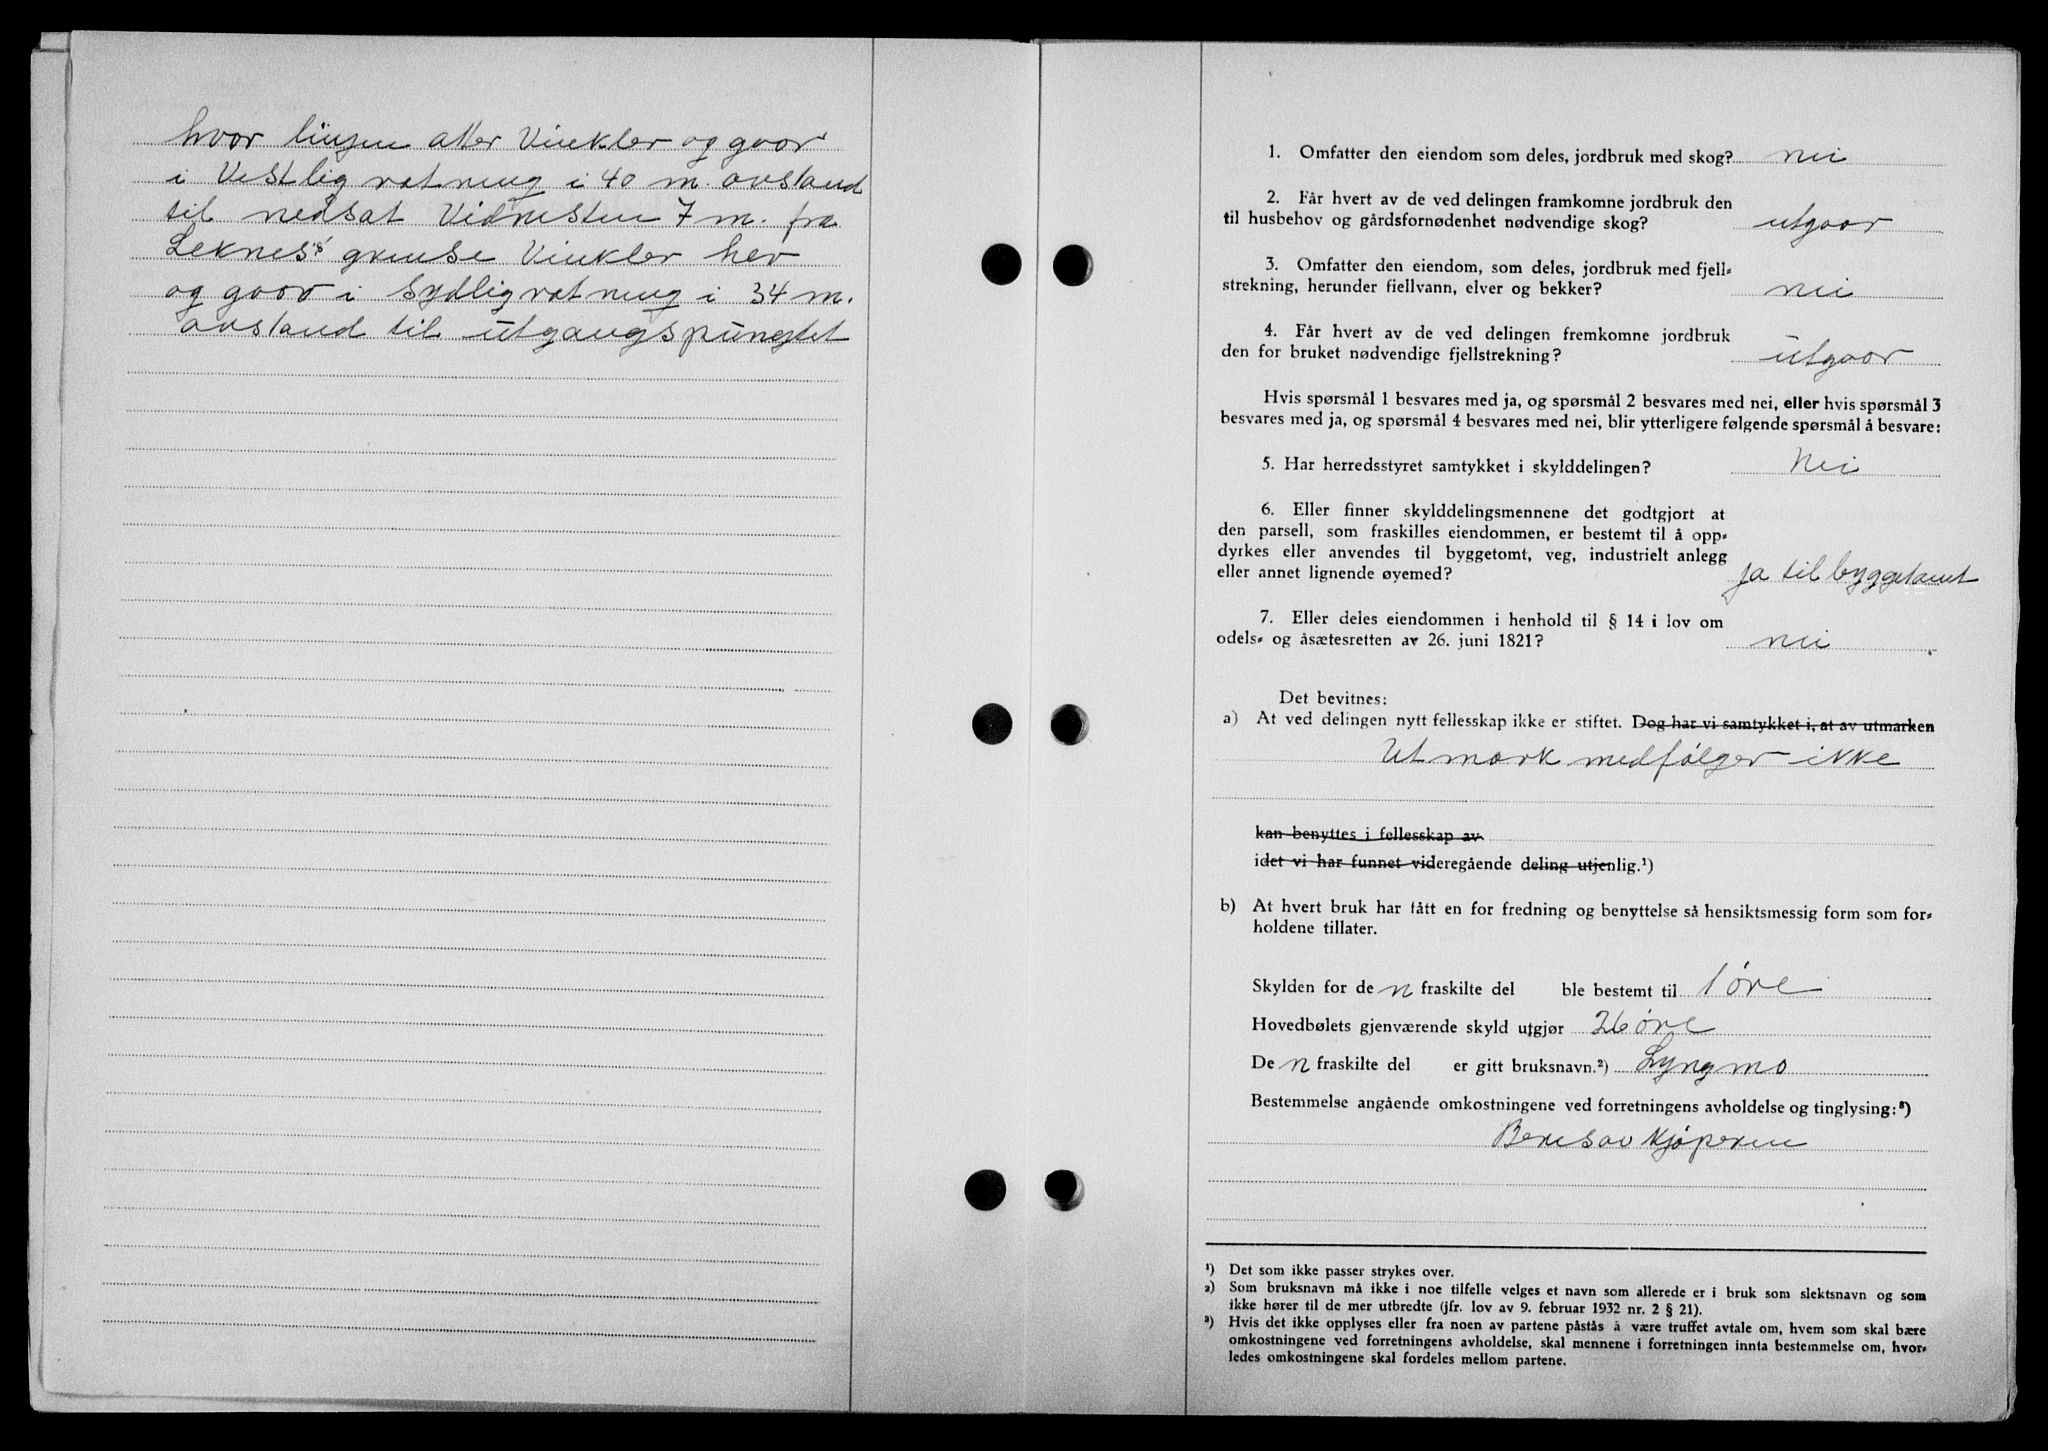 hvor linjen atter Vinkler og gaar
i Vestlig retning i 40 m. avstand
til nedsat Vidnesten 7 m. fra
Leknes's grense Vinkler her
og gaar i Sydlig retning i 34 m.
avstand til utgangspungtet
1. Omfatter den eiendom som deles, jordbruk med skog? nei
2. Får hvert av de ved delingen framkomne jordbruk den
til husbehov og gårdsfornødenhet nødvendige skog? utgaar
3. Omfatter den eiendom, som deles, jordbruk med fjell-
strekning, herunder fiellvann, elver og bekker? nei
4. Får hvert av de ved delingen fremkomne jordbruk
den for bruket nødvendige fjellstrekning? utgaar
Hvis spørsmål 1 besvares med ja, og spørsmål 2 besvares med nei, eller hvis spørsmål 3
besvares med ja, og spørsmål 4 besvares med nei, blir ytterligere følgende spørsmål å besvare:
5. Har herredsstyret samtykket i skylddelingen? Nei
6. Eller finner skylddelingsmennene det godtgjort at
den parsell, som fraskilles eiendommen, er bestemt til å opp-
dyrkes eller anvendes til byggetomt, veg, industrielt anlegg
eller annet lignende øyemed? ja til byggetomt
7. Eller deles eiendommen i henhold til § 14 i lov om
odels- og åsætesretten av 26. juni 1821? nei
Det bevitnes:
a) At ved delingen nytt fellesskap ikke er stiftet. Dog har vi samtykket i, at av utmarken
Utmark medfølger ikke
kan benyttes i fellesskap av
idet vi har funnet videregående deling utjenlig.¹)
b) At hvert bruk har fått en for fredning og benyttelse så hensiktsmessig form som for-
holdene tillater.
Skylden for den fraskilte del ble bestemt til 1 øre
Hovedbølets gjenværende skyld utgjør 26 øre
Den fraskilte del er gitt bruksnavn.²) Lyngmo
Bestemmelse angående omkostningene ved forretningens avholdelse og tinglysing:³)
Beres av Kjøperen
¹) Det som ikke passer strykes over.
²) Som bruksnavn må ikke i noe tilfelle velges et navn som allerede er i bruk som slektsnavn og som
ikke hører til de mer utbredte (jfr. lov av 9. februar 1932 nr. 2 § 21).
³) Hvis det ikke opplyses eller fra noen av partene påstås å være truffet avtale om, hvem som skal bære
omkostningene ved forretningens avholdelse, skal mennene i forretningen innta bestemmelse om, hvor-
ledes omkostningene skal fordeles mellom partene.